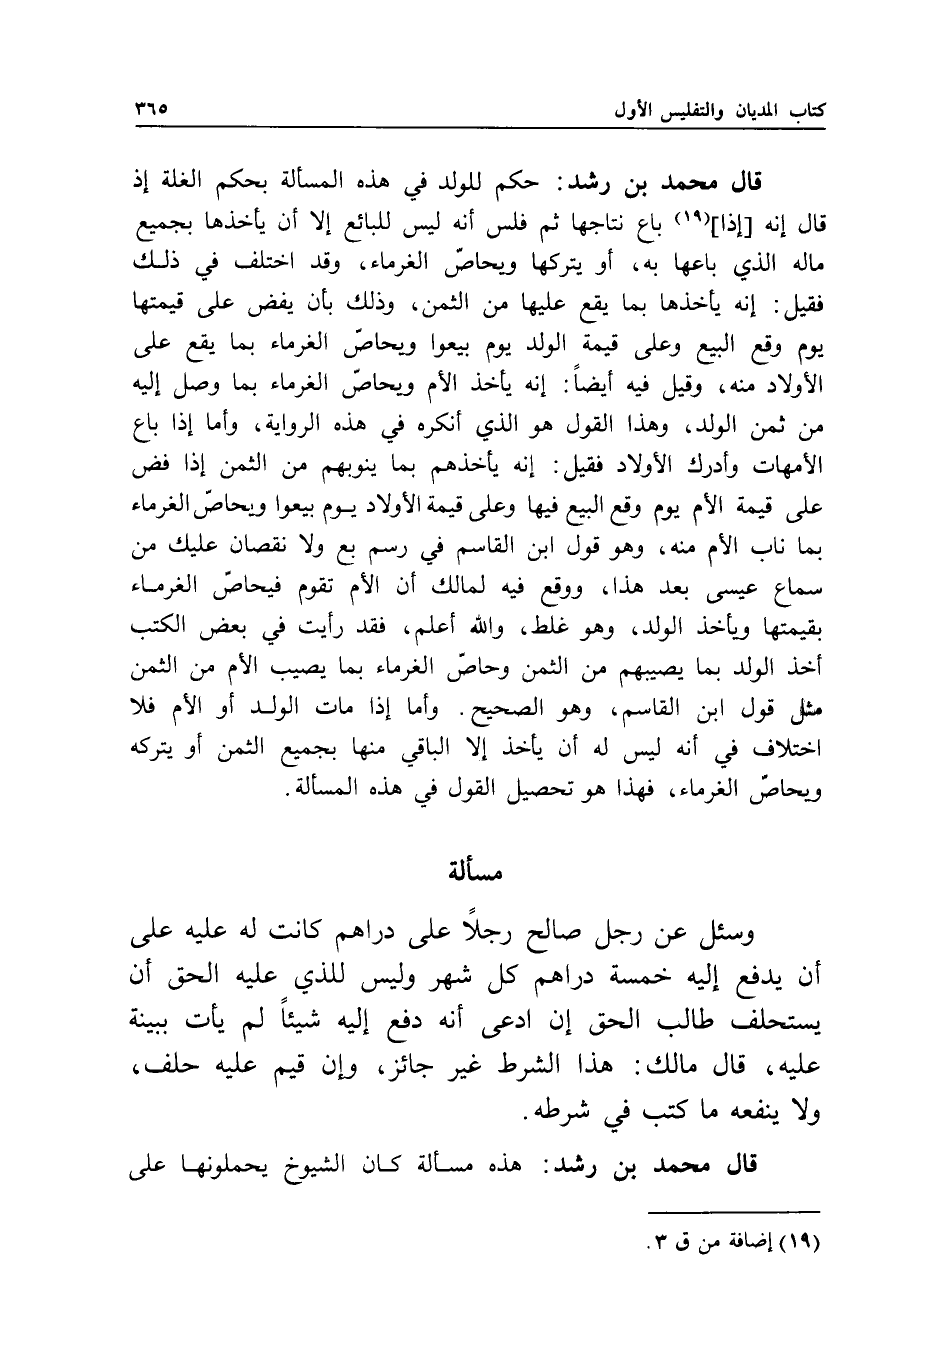 كتاب المديان والتفليس الأول ٣٦٥
قال محمد بن رشد: حكم للولد في هذه المسألة بحكم الغلة إذ
قال إنه [إذا](١٩) باع نتاجها ثم فلس أنه ليس للبائع إلا أن يأخذها بجميع
ماله الذي باعها به، أو يتركها ويحاصّ الغرماء، وقد اختلف في ذلك
فقيل: إنه يأخذها بما يقع عليها من الثمن، وذلك بأن يفض على قيمتها
يوم وقع البيع وعلى قيمة الولد يوم بيعوا ويحاصّ الغرماء بما يقع على
الأولاد منه، وقيل فيه أيضاً: إنه يأخذ الأم ويحاصّ الغرماء بما وصل إليه
من ثمن الولد، وهذا القول هو الذي أنكره في هذه الرواية، وأما إذا باع
الأمهات وأدرك الأولاد فقيل: إنه يأخذهم بما ينوبهم من الثمن إذا فض
على قيمة الأم يوم وقع البيع فيها وعلى قيمة الأولاد يوم بيعوا ويحاصّ الغرماء
بما ناب الأم منه، وهو قول ابن القاسم في رسم بع ولا نقصان عليك من
سماع عيسى بعد هذا، ووقع فيه لمالك أن الأم تقوم فيحاصّ الغرماء
بقيمتها ويأخذ الولد، وهو غلط، والله أعلم، فقد رأيت في بعض الكتب
أخذ الولد بما يصيبهم من الثمن وحاصّ الغرماء بما يصيب الأم من الثمن
مثل قول ابن القاسم، وهو الصحيح. وأما إذا مات الولد أو الأم فلا
اختلاف في أنه ليس له أن يأخذ إلا الباقي منها بجميع الثمن أو يتركه
ويحاصّ الغرماء، فهذا هو تحصيل القول في هذه المسألة.
مسألة
وسئل عن رجل صالح رجلاً على دراهم كانت له عليه على
أن يدفع إليه خمسة دراهم كل شهر وليس للذي عليه الحق أن
يستحلف طالب الحق إن ادعى أنه دفع إليه شيئاً لم يأت ببينة
عليه، قال مالك: هذا الشرط غير جائز، وإن قيم عليه حلف،
ولا ينفعه ما كتب في شرطه.
قال محمد بن رشد: هذه مسألة كان الشيوخ يحملونها على
(١٩) إضافة من ق ٣.